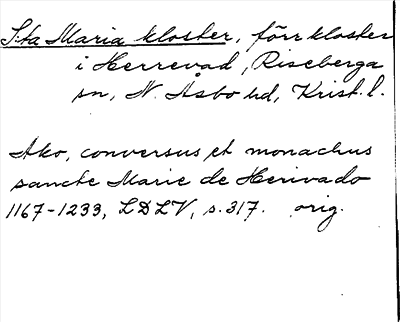 S:ta Maria kloster, förr kloster
i Herrevad, Riseberga
sn, N. Åsbo hd, Krist. l.
Ako, conversus et monachus
sancte Marie de Herivado
1167-1233, LDLV, s. 317. orig.